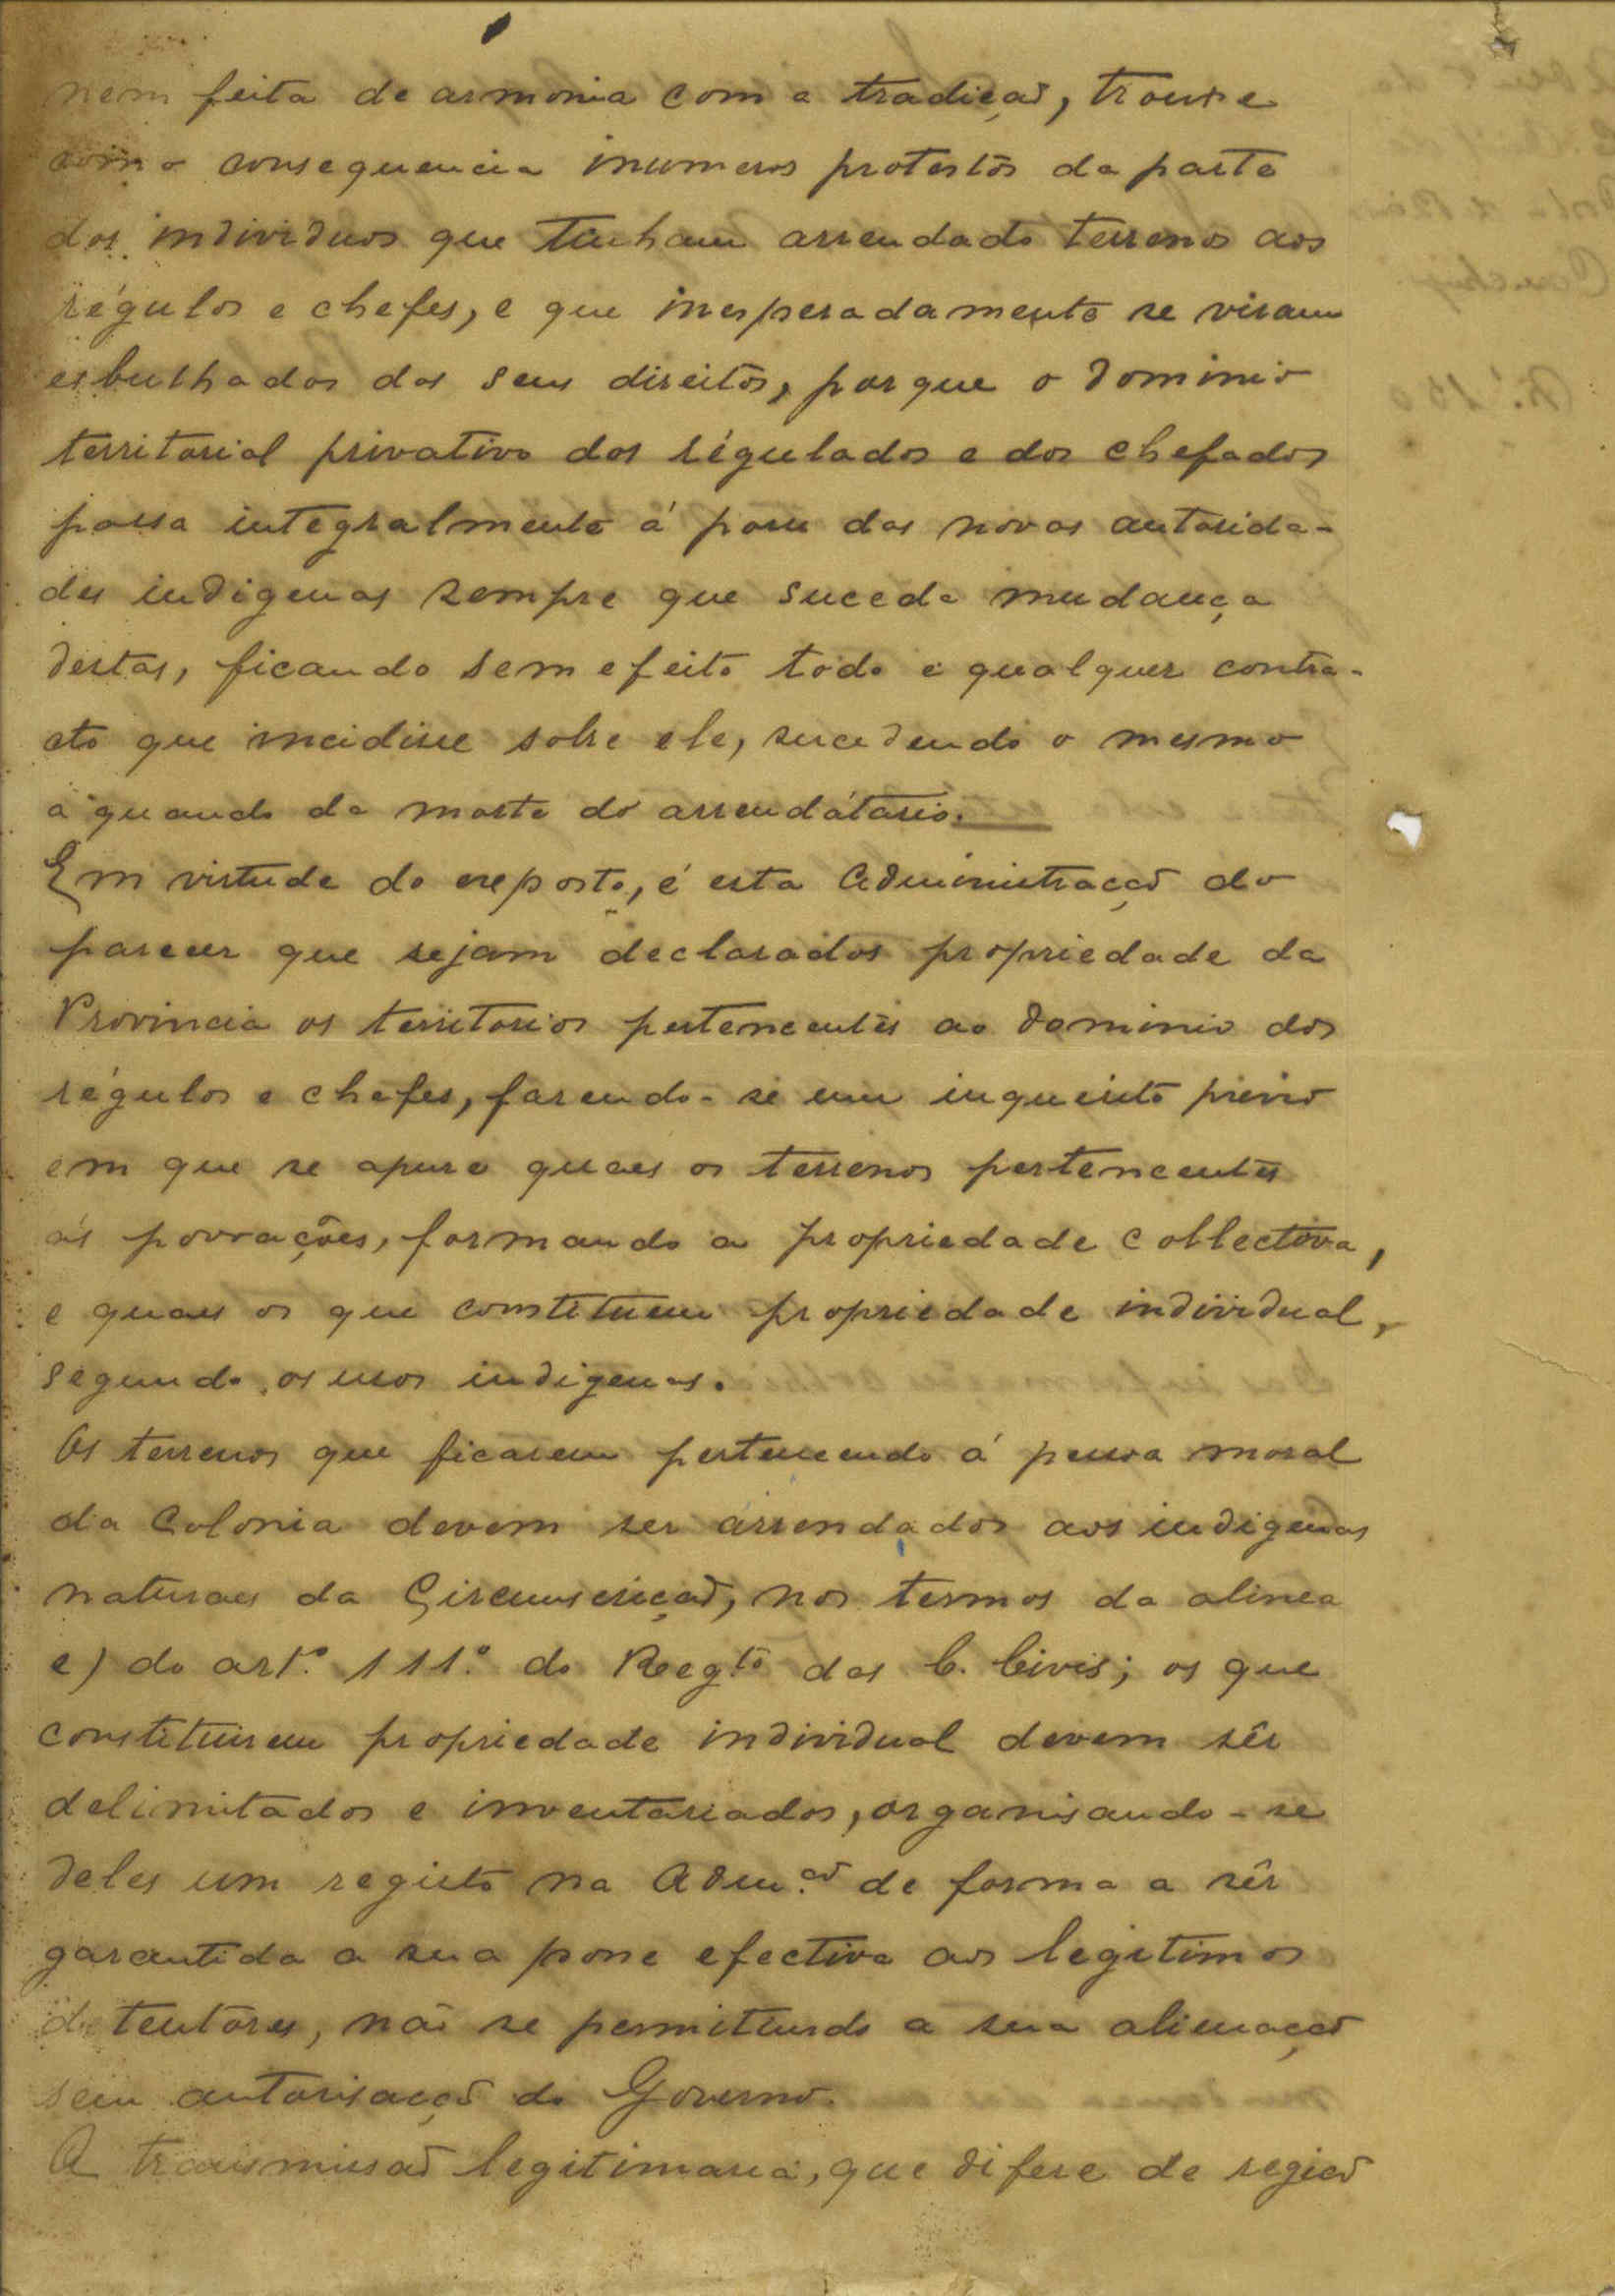 nem feita de armonia com a tradição, trouxe
como consequencia inumeros protestos da parte
dos individuos que tinham arrendado terrenos aos
régulos e chefes, e que inesperadamente se viram
esbulhados dos seus direitos, porque o dominio
territorial privativo dos régulados e dos chefados
passa integralmente á posse das novas autorida-
des indigenas sempre que suceda mudança
destas, ficando sem efeito todo e qualquer contra-
cto que incidisse sobre ele, sucedendo o mesmo
aquando da morte do arrendátario.
Em virtude do exposto, é esta Administração do
parecer que sejam declarados propriedade da
Provincia os territorios pertencentes ao dominio dos
régulos e chefes, fazendo-se um inquerito previo
em que se apure quaes os terrenos pertencentes
ás povoações, formando a propriedade collectiva,
e quaes os que constituem propriedade individual,
segundo os usos indigenas.
Os terrenos que ficarem pertencendo á pessoa moral
da Colonia devem ser arrendados aos indigenas
naturaes da Circunscrição, nos termos da alinea
e) do artº. 111º. do Regtº das C. Civis; os que
constituirem propriedade individual devem sêr
delimitados e inventariados, organisando-se
deles um registo na Adm.ão de forma a sêr
garantida a sua posse efectiva aos legitimos
detentores, não se permittindo a sua alienação
sem autorisação do Governo.
A transmissão legitimaria, que difere de região